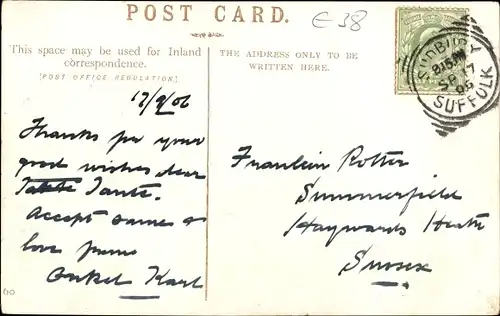 POST CARD.
€38
This space may be used for Inland
correspondence.
[POST OFFICE REGULATION.]
THE ADDRESS ONLY TO BE
WRITTEN HERE.
SUDBURY
SP 17
06
SUFFOLK
17/9/06
Thanks for your
good wishes dear
Tante.
Accept same &
love from
Onkel Karl
Fraulein Rotter
Summerfield
Haywards Heath
Sussex
60